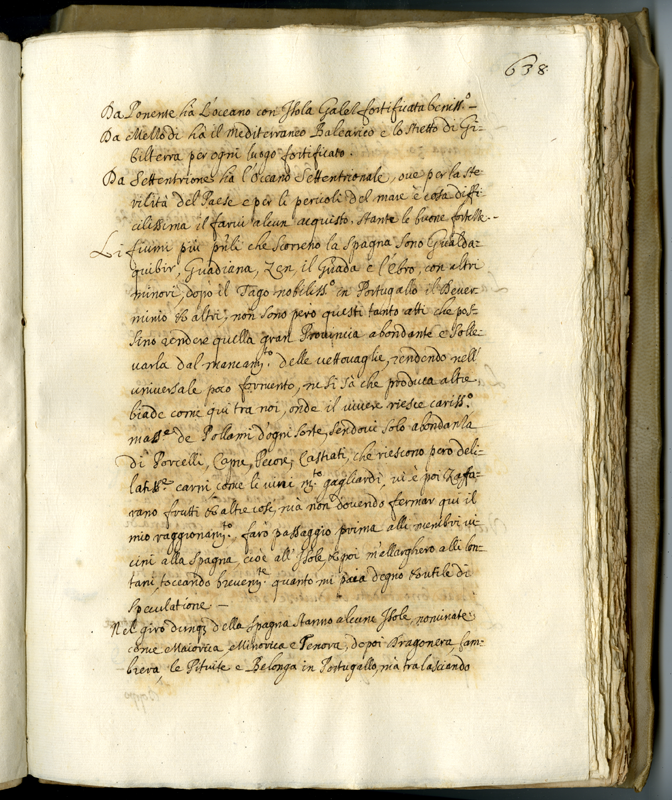 638
Da Ponente ha l'oceano con Isola Gales fortificata beniss.o –
Da Mezzodi ha il mediterraneo Balearico e lo stretto di Gi-
bilterra per ogni luogo fortificato.
Da Settentrione ha l'oceano Settentrionale, oue per la ste
rilità del Paese e per li pericoli del mare è cosa diffi
cilissima il farui alcun acquisto, stante le buone fortezze.
Li fiumi più pñli che scorreno la Spagna sono Gualda-
quibir, Guadiana, Zen, il Guada e l'Ebro, con altri
minori, dopò il Tago nobiliss.o in Portugallo il
minio & altri; non sono però questi tanto atti che pos-
sino rendere quella gran Prouincia abondante e solle-
uarla dal mancam.to delle vettouaglie, rendendo nell'
vniuersale poco formento, ne si sà che produca altre
biade come qui tra noi, onde il viuere riesce cariss.o
mass.e de Pollami d'ogni sorte, sendoui solo abondanza
di Porcelli, Capre, Pecore, Castrati, che riescono pero deli-
catiss.e carni come li vini m.to gagliardi, vi è poi Zaffa-
rano frutti & altre cose, ma non douendo fermar qui il
mio raggionam.to farò passaggio prima alli membri vi-
cini alla Spagna, cioè all'Isole & poi m'allargherò alli lon-
tani, toccando breuem.te quanto mi paia degno & utile di
speculatione –
Nel giro dunq3 della Spagna stanno alcune Isole nominate
come Maiorica, Minorica e Tenora, depoi Dragonera, Cam-
brera, le Pitiuite e Belonga in Portugallo, ma tralasciando